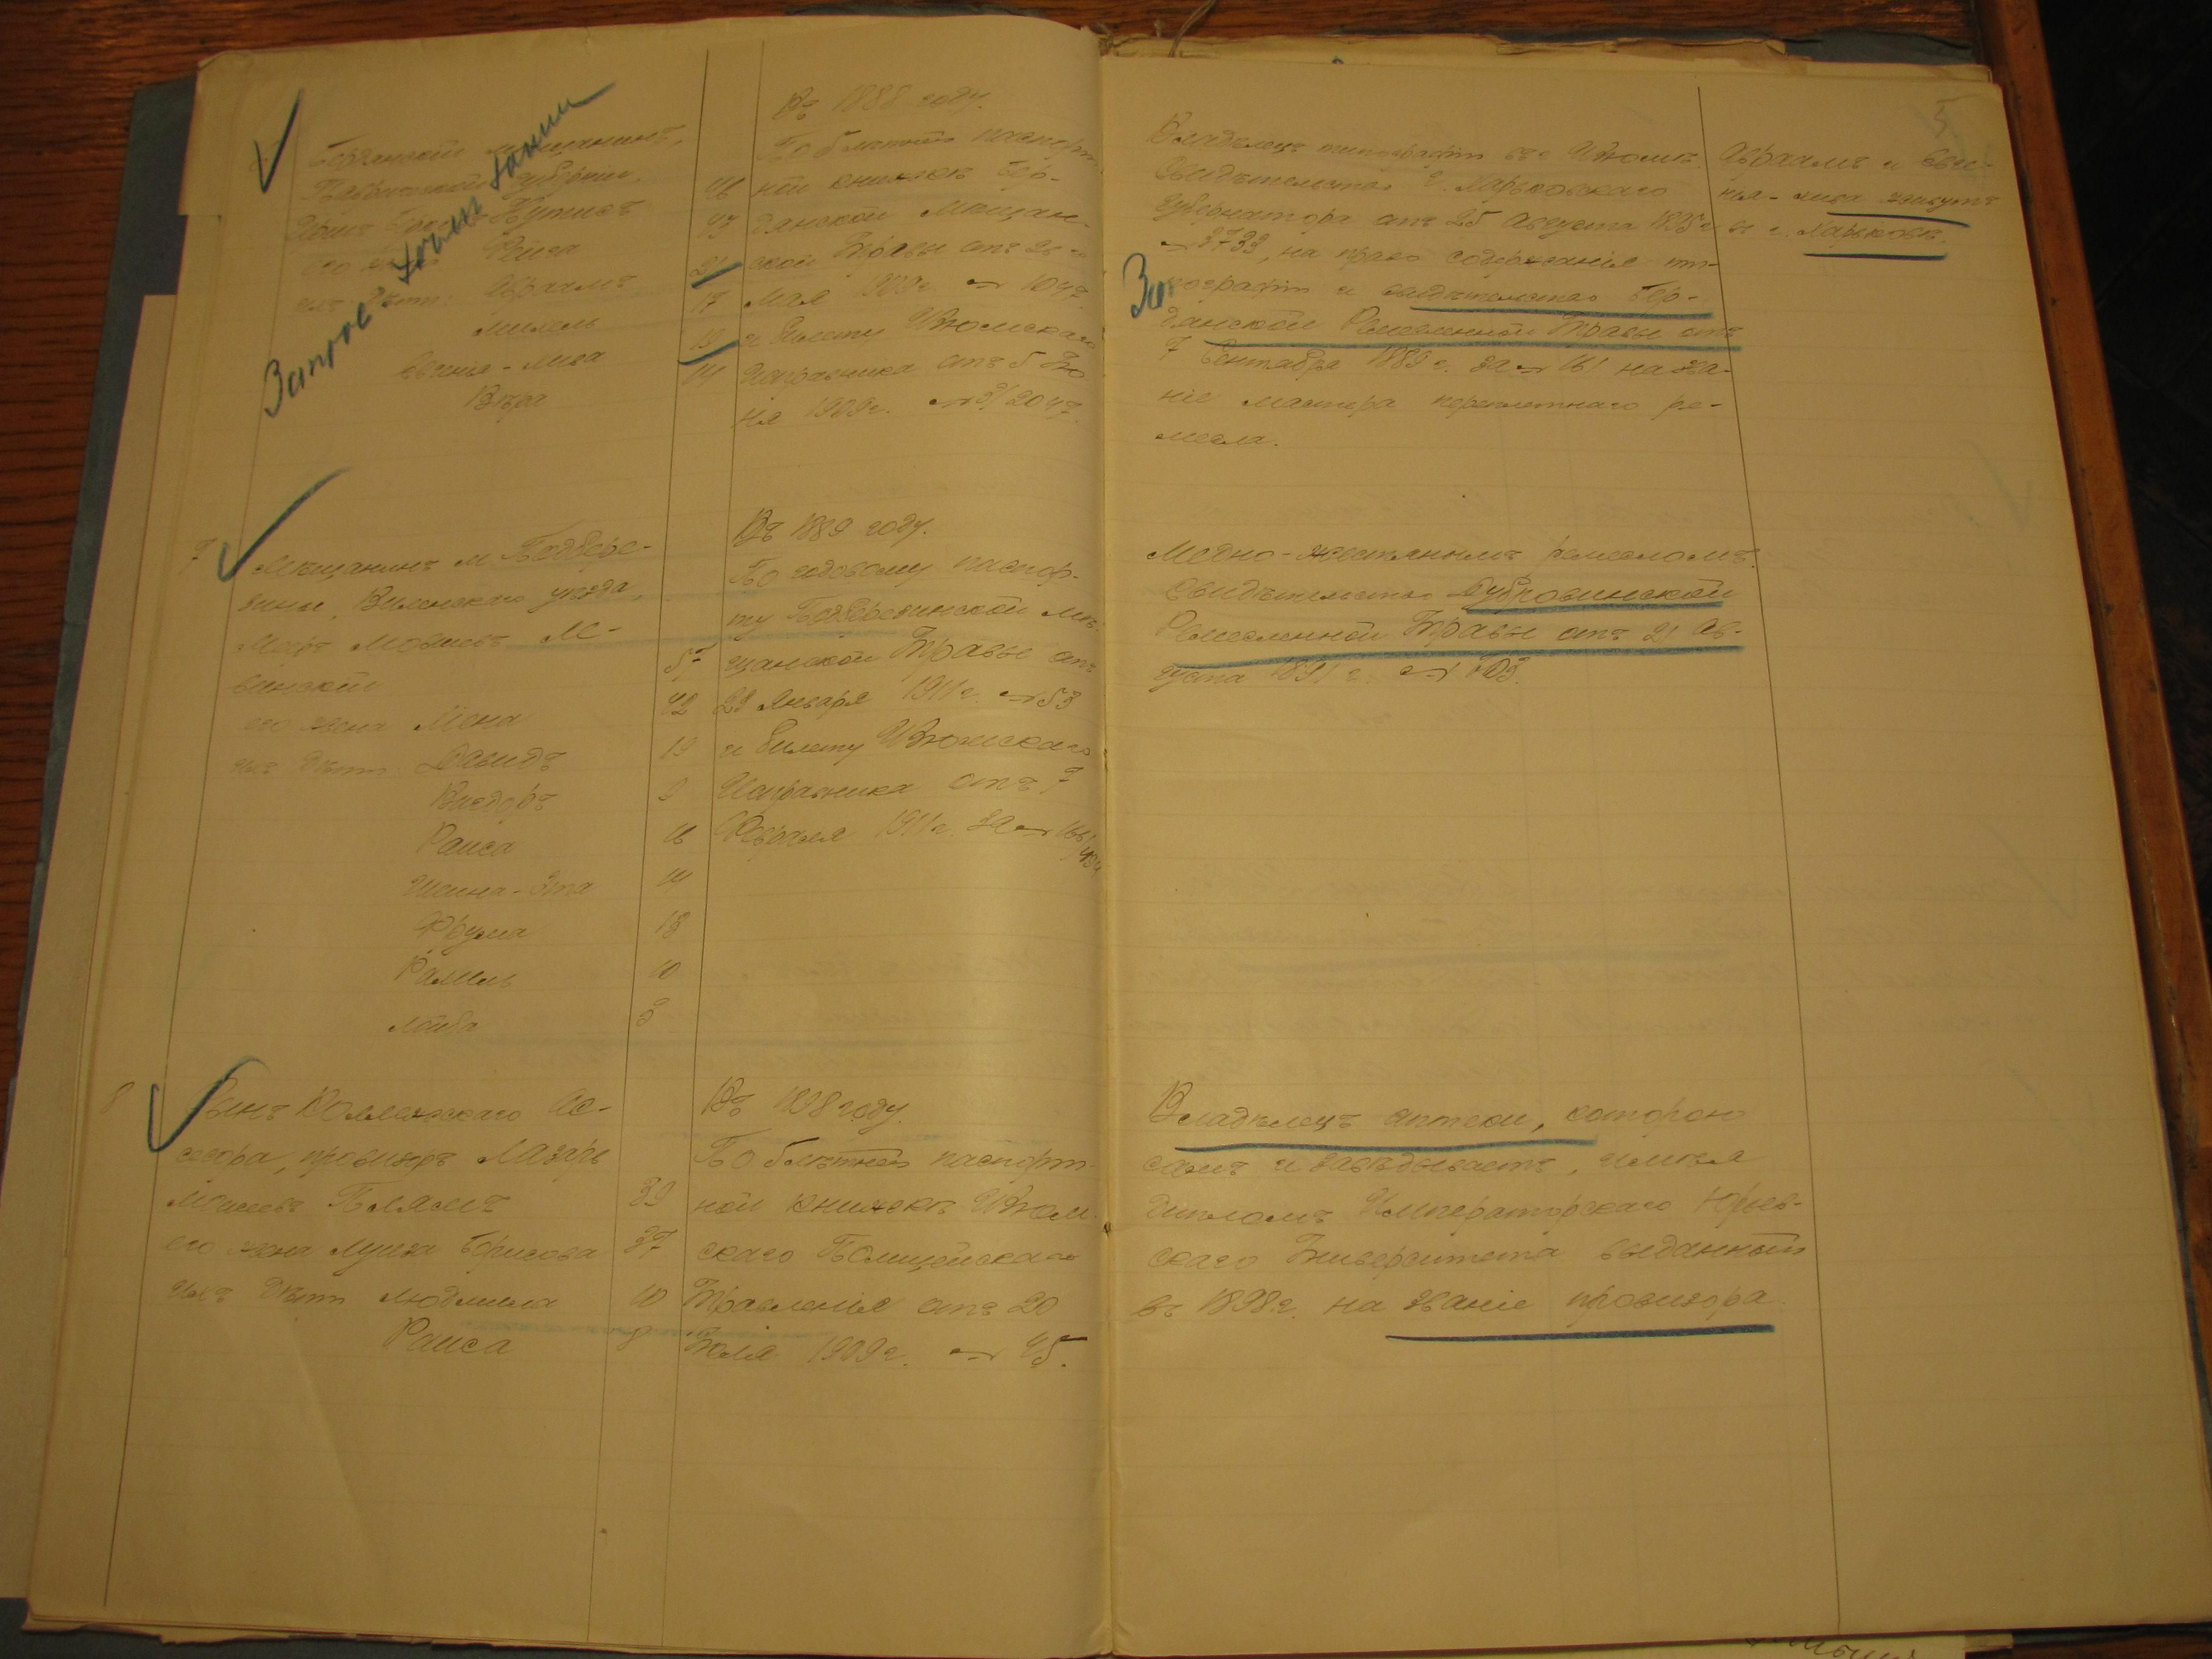 5
Бердянскій мѣщанинъ,
Таврической губерніи,
его жена Рейза
ихъ дѣти: Авраамъ
Михель
Евгенія-Лиза
Вѣра
46
43
21
17
19
14
Запрос
Въ 1888 году.
По безсрочной паспорт-
ной книжкѣ Бер-
дянской Мѣщан-
ской Управы отъ 21
Мая 1909 г. № 1047
и билету Изюмскаго
Исправника отъ 5 Iю
ня 1909 г. № 2047.
Владѣлецъ типографіи въ г. Изюмѣ.
Свидѣтельство г. Харьковскаго
Губернатора отъ 25 Августа 1895 г.
№ 3739, на право содержанія ти-
пографіи и свидѣтельство Бер-
дянской Ремесленной Управы отъ
7 Сентября 1889 г. за № 161 на зва-
ніе мастера переплетнаго ре-
месла.
Авраамъ и Евге-
нія-Лиза живутъ
въ г. Харьковѣ.
7
Мѣщанинъ м. Подбере-
зины, Виленскаго уѣзда,
Мееръ Мовшевъ
его жена Лiена
ихъ дѣти: Давидъ
Вигдоръ
Раиса
Шейна-Эта
Фрума
Рахиль
Лейба
57
42
19
9
16
14
13
10
8
Въ 1889 году.
По годовому паспор-
ту Подберезинской Мѣ-
щанской Управы отъ
29 Января 1911 г. № 53
и билету Изюмскаго
Исправника отъ 7
Февраля 1911 г. за №
Медно-жестянымъ ремесломъ.
Свидѣтельство Дубровинской
Ремесленной Управы отъ 21 Ав-
густа 1891 г. № 703.
8
Сынъ Коллежскаго Ас-
сесора, провизоръ Лазарь
Моисеевъ Плямъ
его жена Луиза Борисова
ихъ дѣти Людмила
Раиса
39
37
10
8
Въ 1898 году.
По безсрочной паспорт-
ной книжкѣ Изюм-
скаго Полицейскаго
Управленія отъ 20
Iюля 1909 г. № 45.
Владѣлецъ аптеки, которою
самъ и завѣдываетъ, имѣя
дипломъ Императорскаго Юрьев-
скаго Университета выданный
въ 1898 г. на званіе провизора.